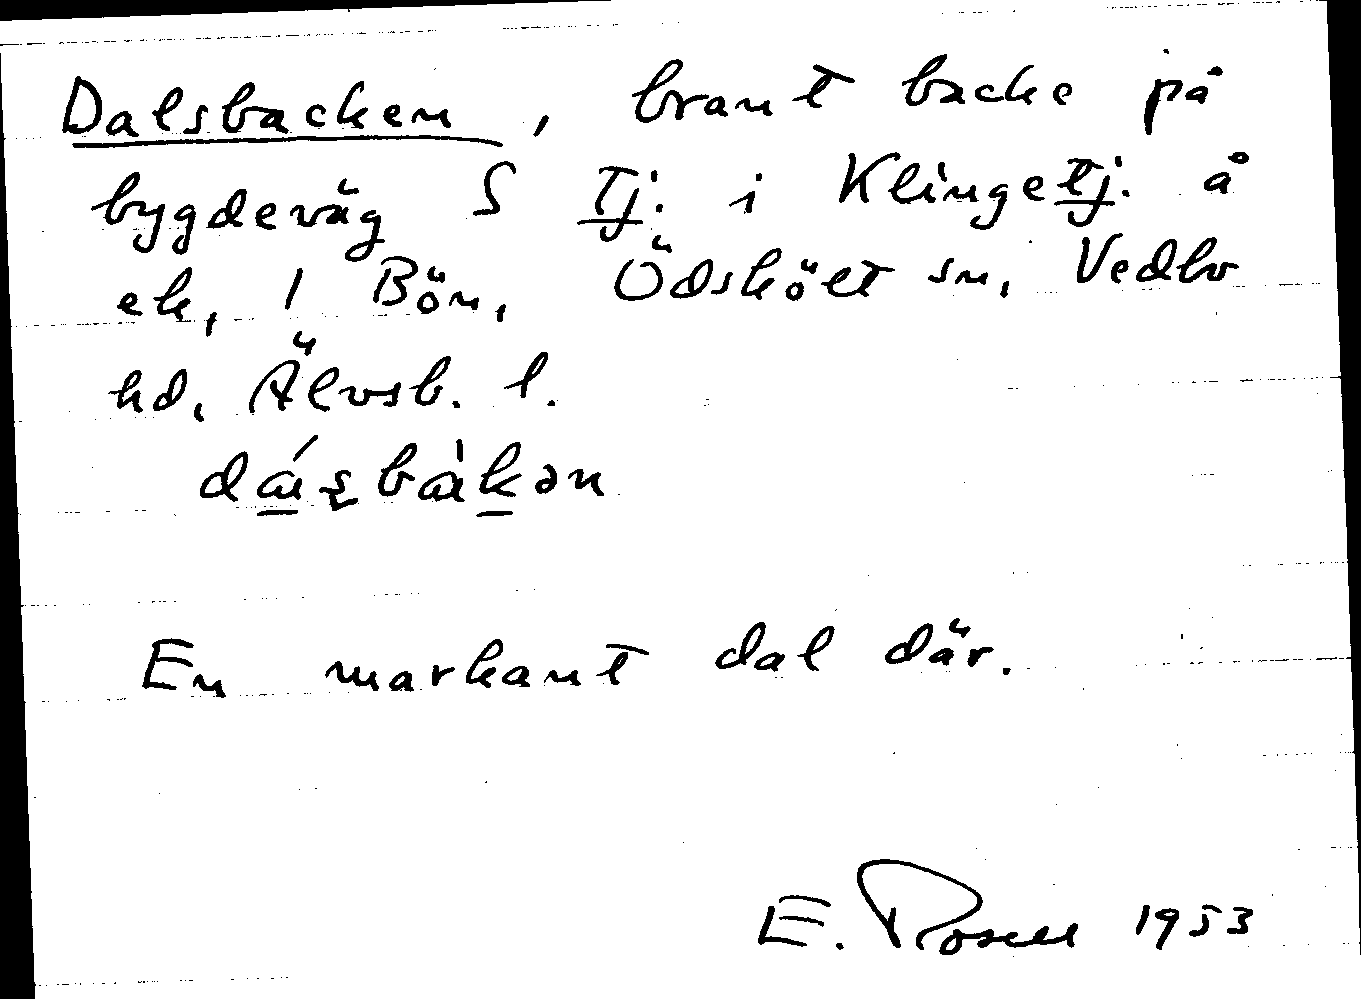 Dalsbacken, brant backe på
bygdeväg S Tj. i Klingetj. å
ek, 1 Bön, Ödskölt sn, Vedbo
hd, Älvsb. l.
En markant dal där.
E. Rosell 1953